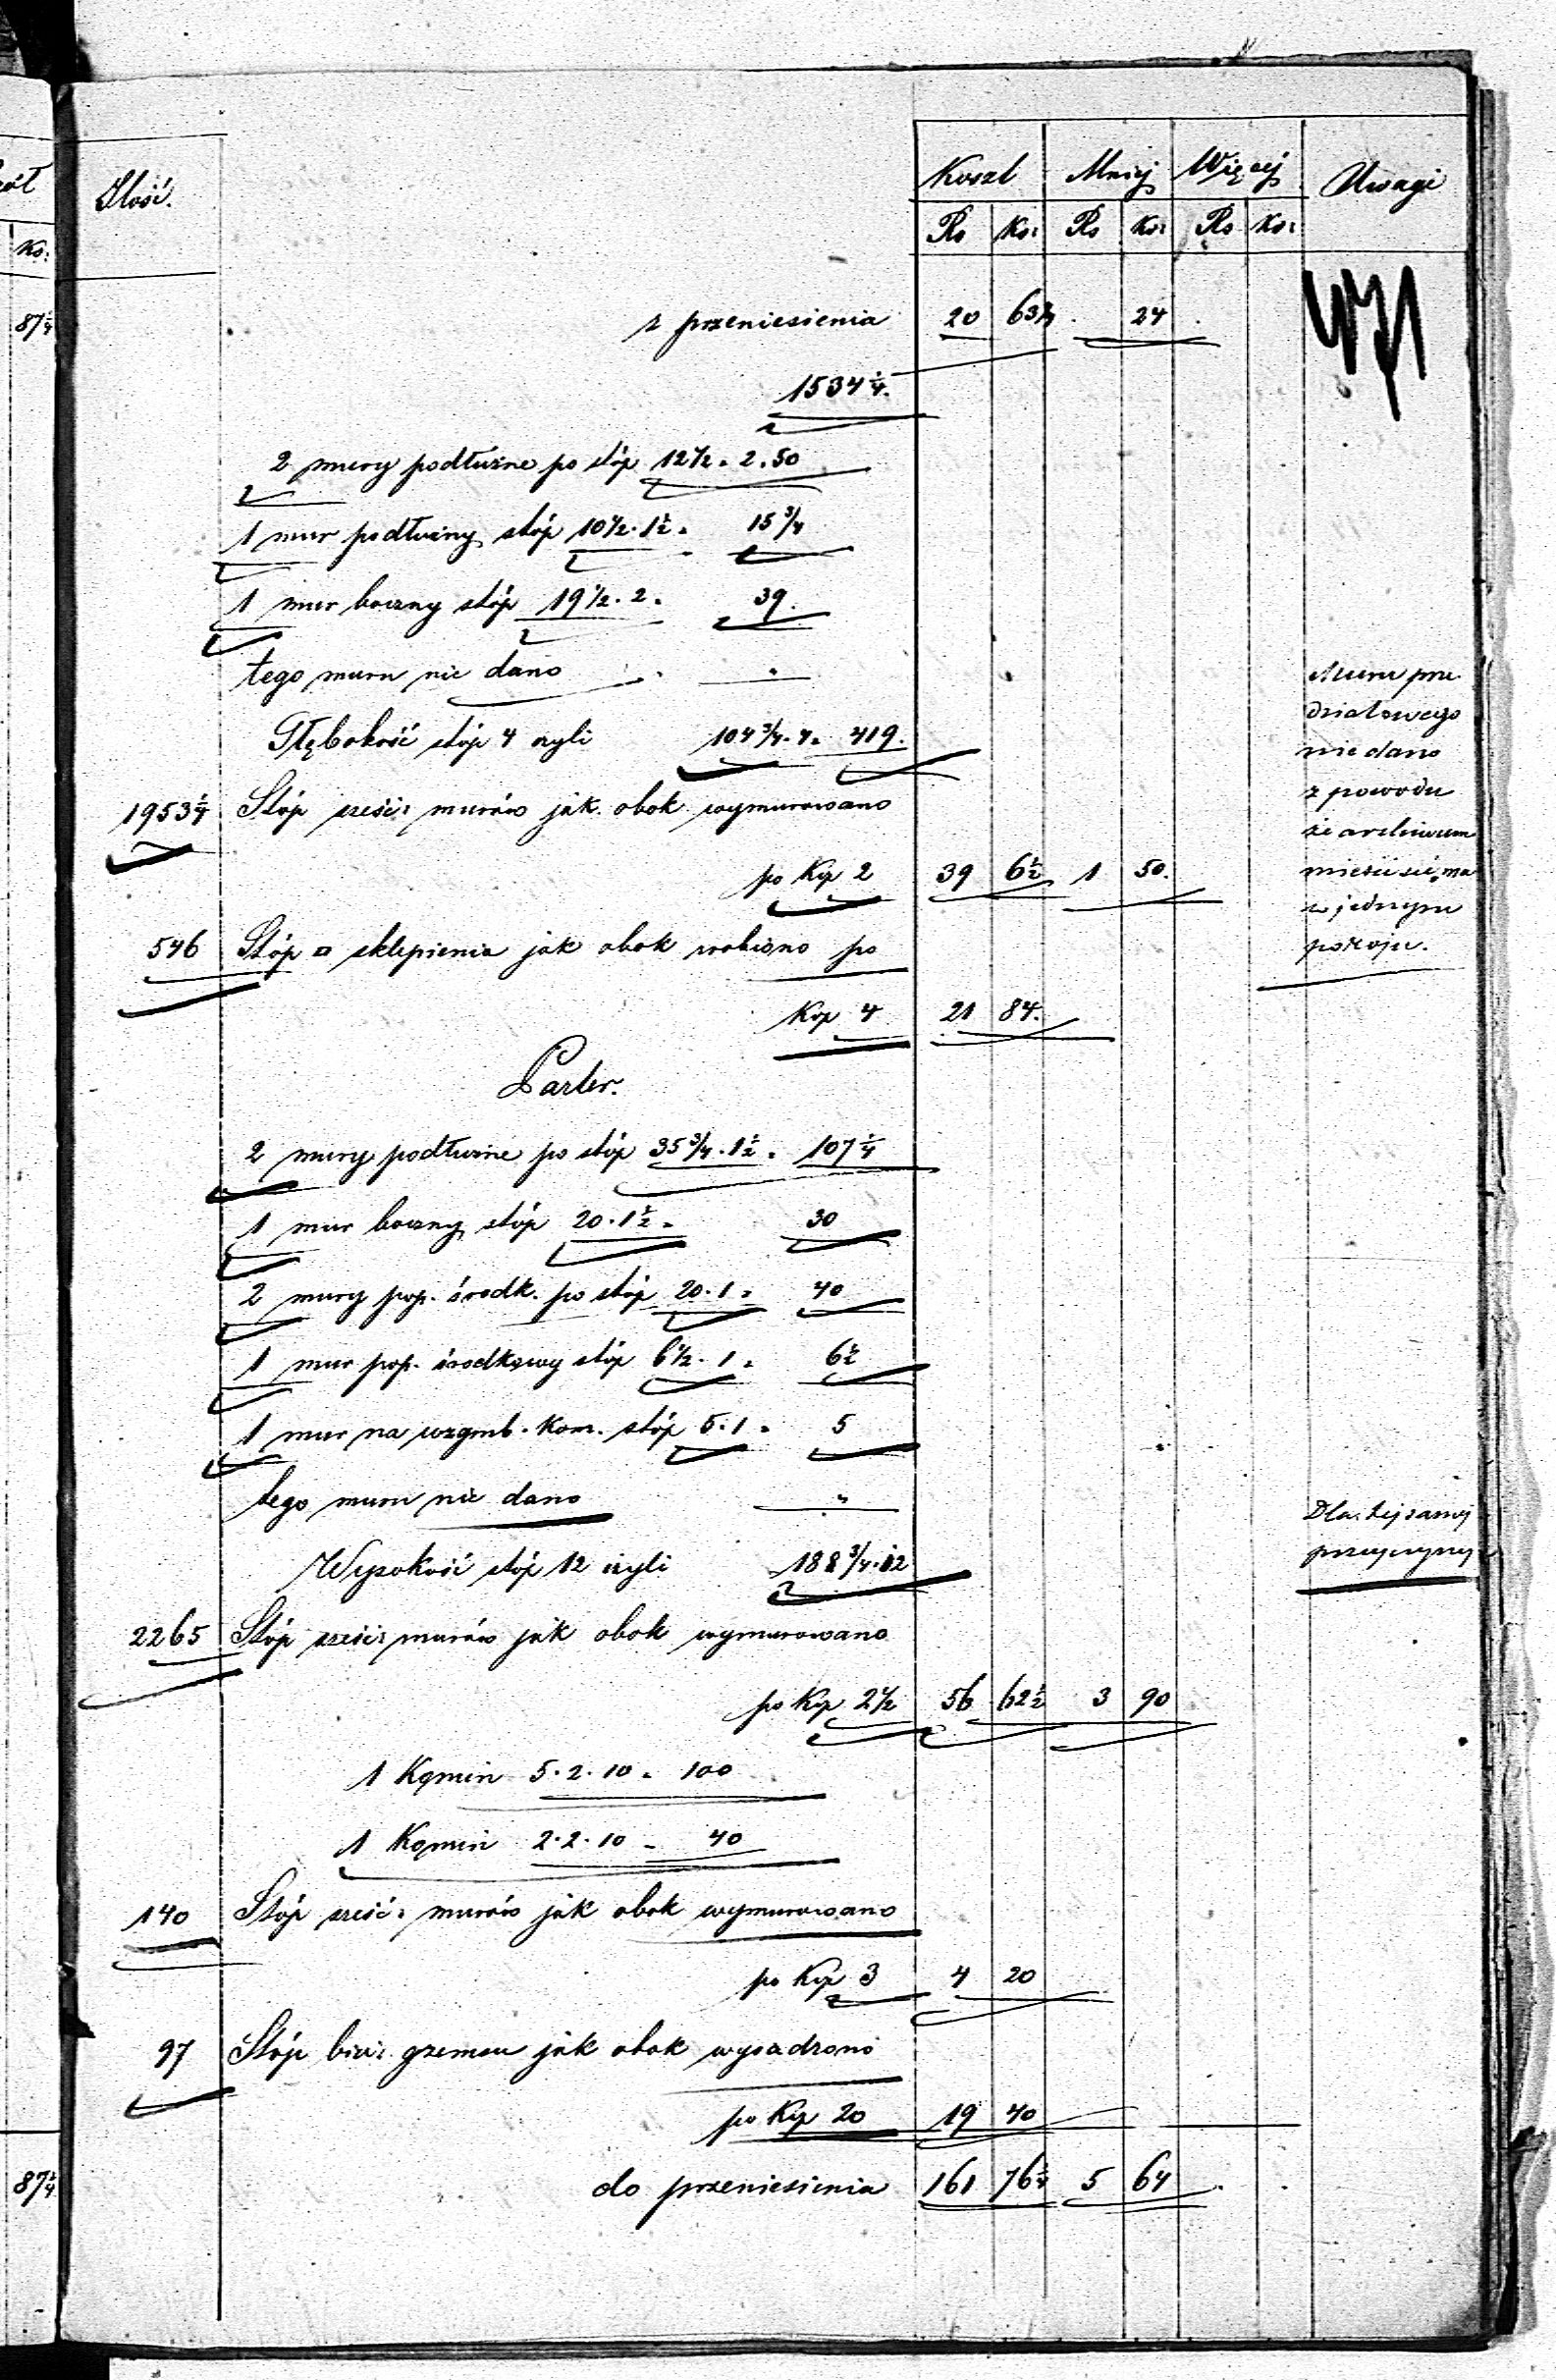 Ilość.
Koszt Mniej Więcej Uwagi
Rs Ko: Rs Ko: Rs Ko:
z przeniesienia 20 63¾ . 24 .
1534¼.
2 mury podłużne po stóp 12½ . 2 . 50
1 mur podłużny stóp 10½ . 1½ = 15¾
1 mur boczny stóp 19½ . 2 = 39.
tego muru nie dano "
Głębokość stóp 4 czyli 104¾ . 4 = 419.
1953¼ Stóp sześć: murów jak obok wymurowano
po Kop 2 39 6½ 1 50.
Muru prze
działowego
nie dano
z powodu
że archiwum
mieścić się ma
w jednym
pokoju.
546 Stóp □ sklepienia jak obok zrobiono po
Kop 4 21 84.
Parter.
2 mury podłużne po stóp 35¾ . 1½ = 107¼
1 mur boczny stóp 20 . 1½ = 30
2 mury pop. środk. po stóp 20 . 1 = 40
1 mur pop. środkowy stóp 6½ . 1 = 6½
1 mur na wzgmb. Kom. stóp 5 . 1 = 5
tego muru nie dano "
Dla tej samej
przyczyny
Wysokość stóp 12 czyli 188¾ . 12
2265 Stóp sześć: murów jak obok wymurowano
po Kop 2½ 56 62½ 3 90
1 Komin 5 . 2 . 10 = 100
1 Komin 2 . 2 . 10 = 40
140 Stóp sześć: murów jak obok wymurowano
po Kop 3 4 20
97 Stóp bież: gzemsu jak obok wysadzono
po Kop 20 19 40
do przeniesienia 161 76¾ 5 64 . .